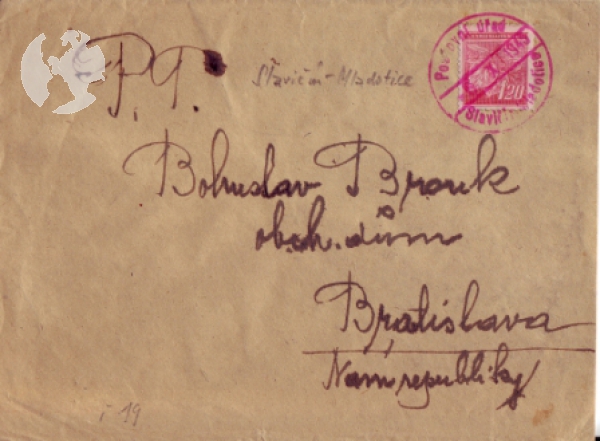 P. T.
Stavičín - Mladotice
Poštovní úřad
1945
1·20
Bohuslav Brouk
obch. dům
Bratislava
Nám. republiky
č 19